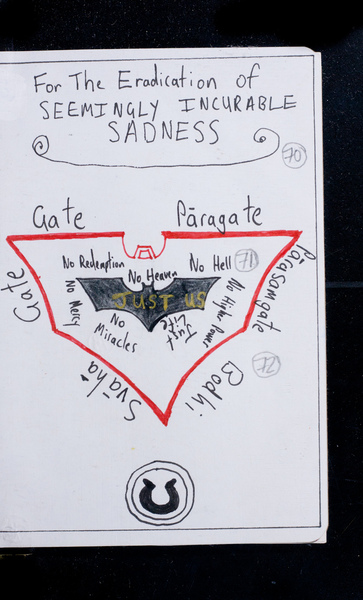 For The Eradication of
SEEMINGLY INCURABLE
SADNESS
70
Gate Pāragate
Gate
Pārasamgate
Bodhi
Svāhā
No Redemption
No Heaven
No Hell
71
No Mercy
JUST US
No Higher Power
No Miracles
Just Life
72